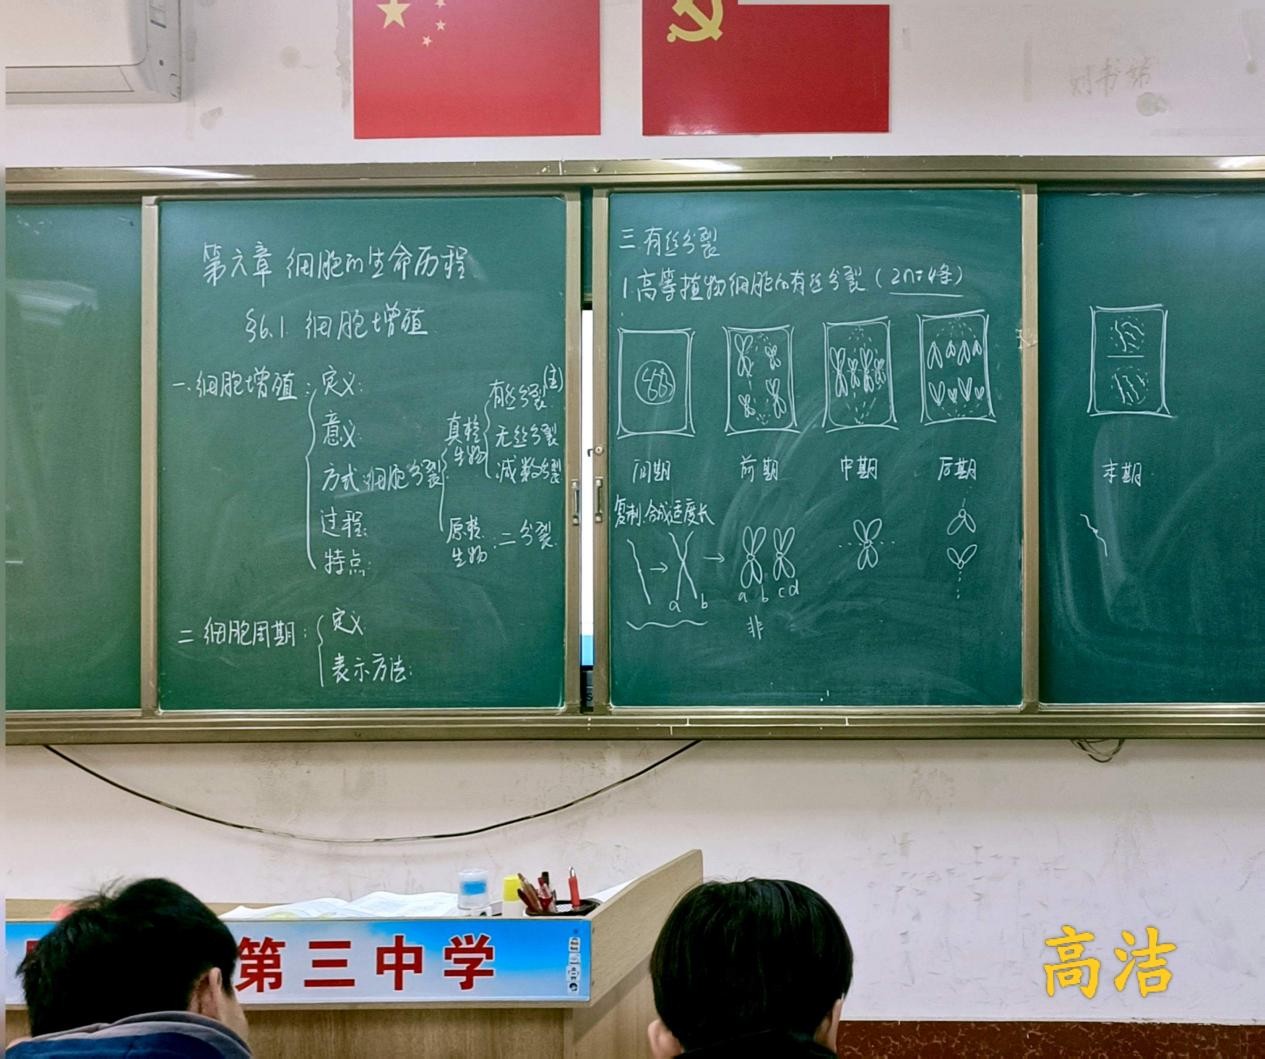 刘书第
第六章 细胞的生命历程
§6.1 细胞增殖
一.细胞增殖:
定义:
意义:
方式:细胞分裂
真核生物
有丝分裂(主)
无丝分裂
减数分裂
原核生物:二分裂
过程:
特点:
二.细胞周期:
定义:
表示方法:
三.有丝分裂
1.高等植物细胞的有丝分裂(2n=4条)
间期 前期 中期 后期 末期
复制.合成.适度长
a b
a b c d
非
第三中学
高洁